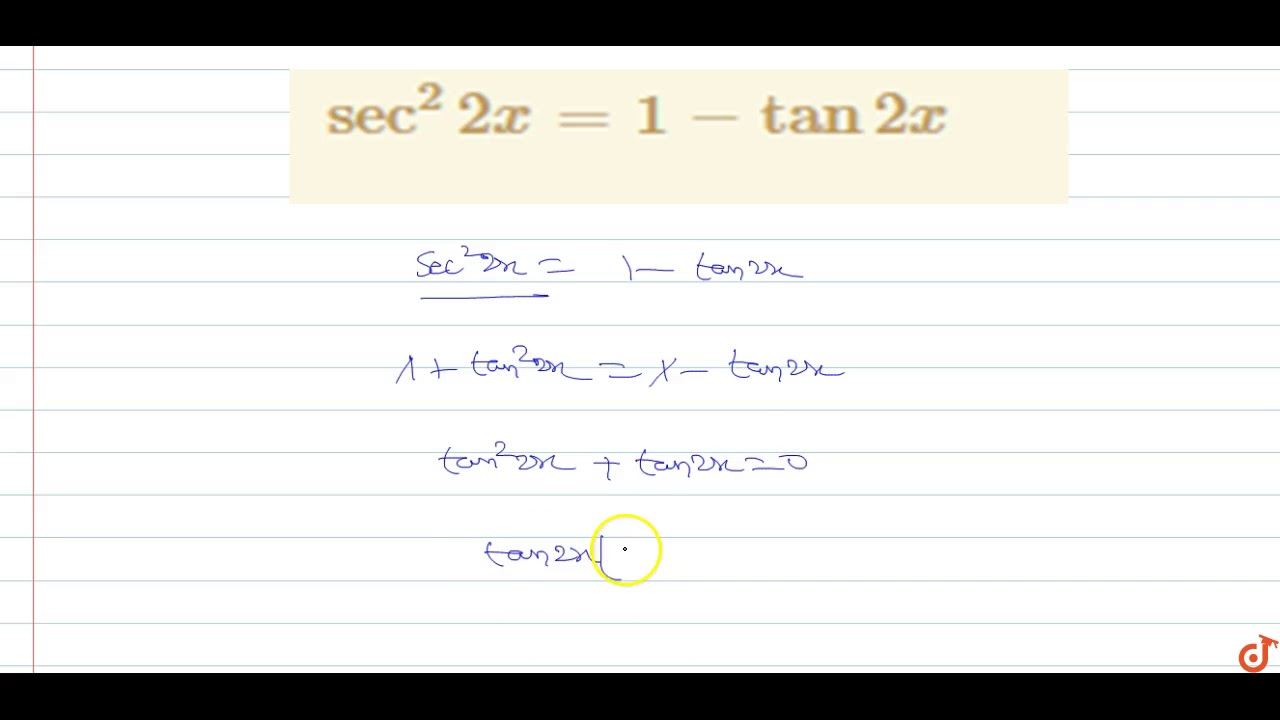 sec² 2x = 1 − tan 2x
sec² 2x = 1 − tan 2x
1 + tan² 2x = 1 − tan 2x
tan² 2x + tan 2x = 0
tan 2x (